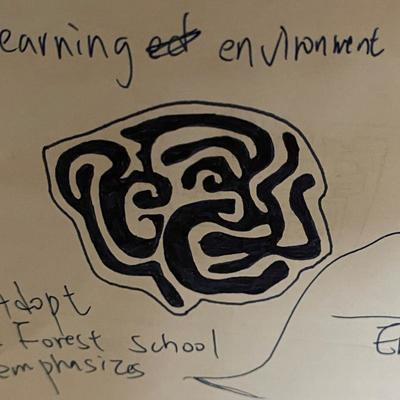 earning environment
Adopt
Forest School
emphasizes